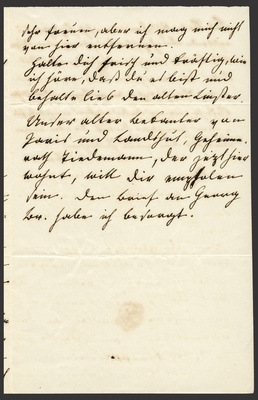 sehr freuen, aber ich mag mich nicht
von hier entfernen.
Halte dich frisch und kräftig, wie
ich höre, daß du es bist und
behalte lieb den alten
Unser alter Bekannter von
Paris und Landshut, Geheime-
rath Tiedemann, der jetzt hier
wohnt, will dir empfolen
sein. Den Brief an Georg
habe ich besorgt.